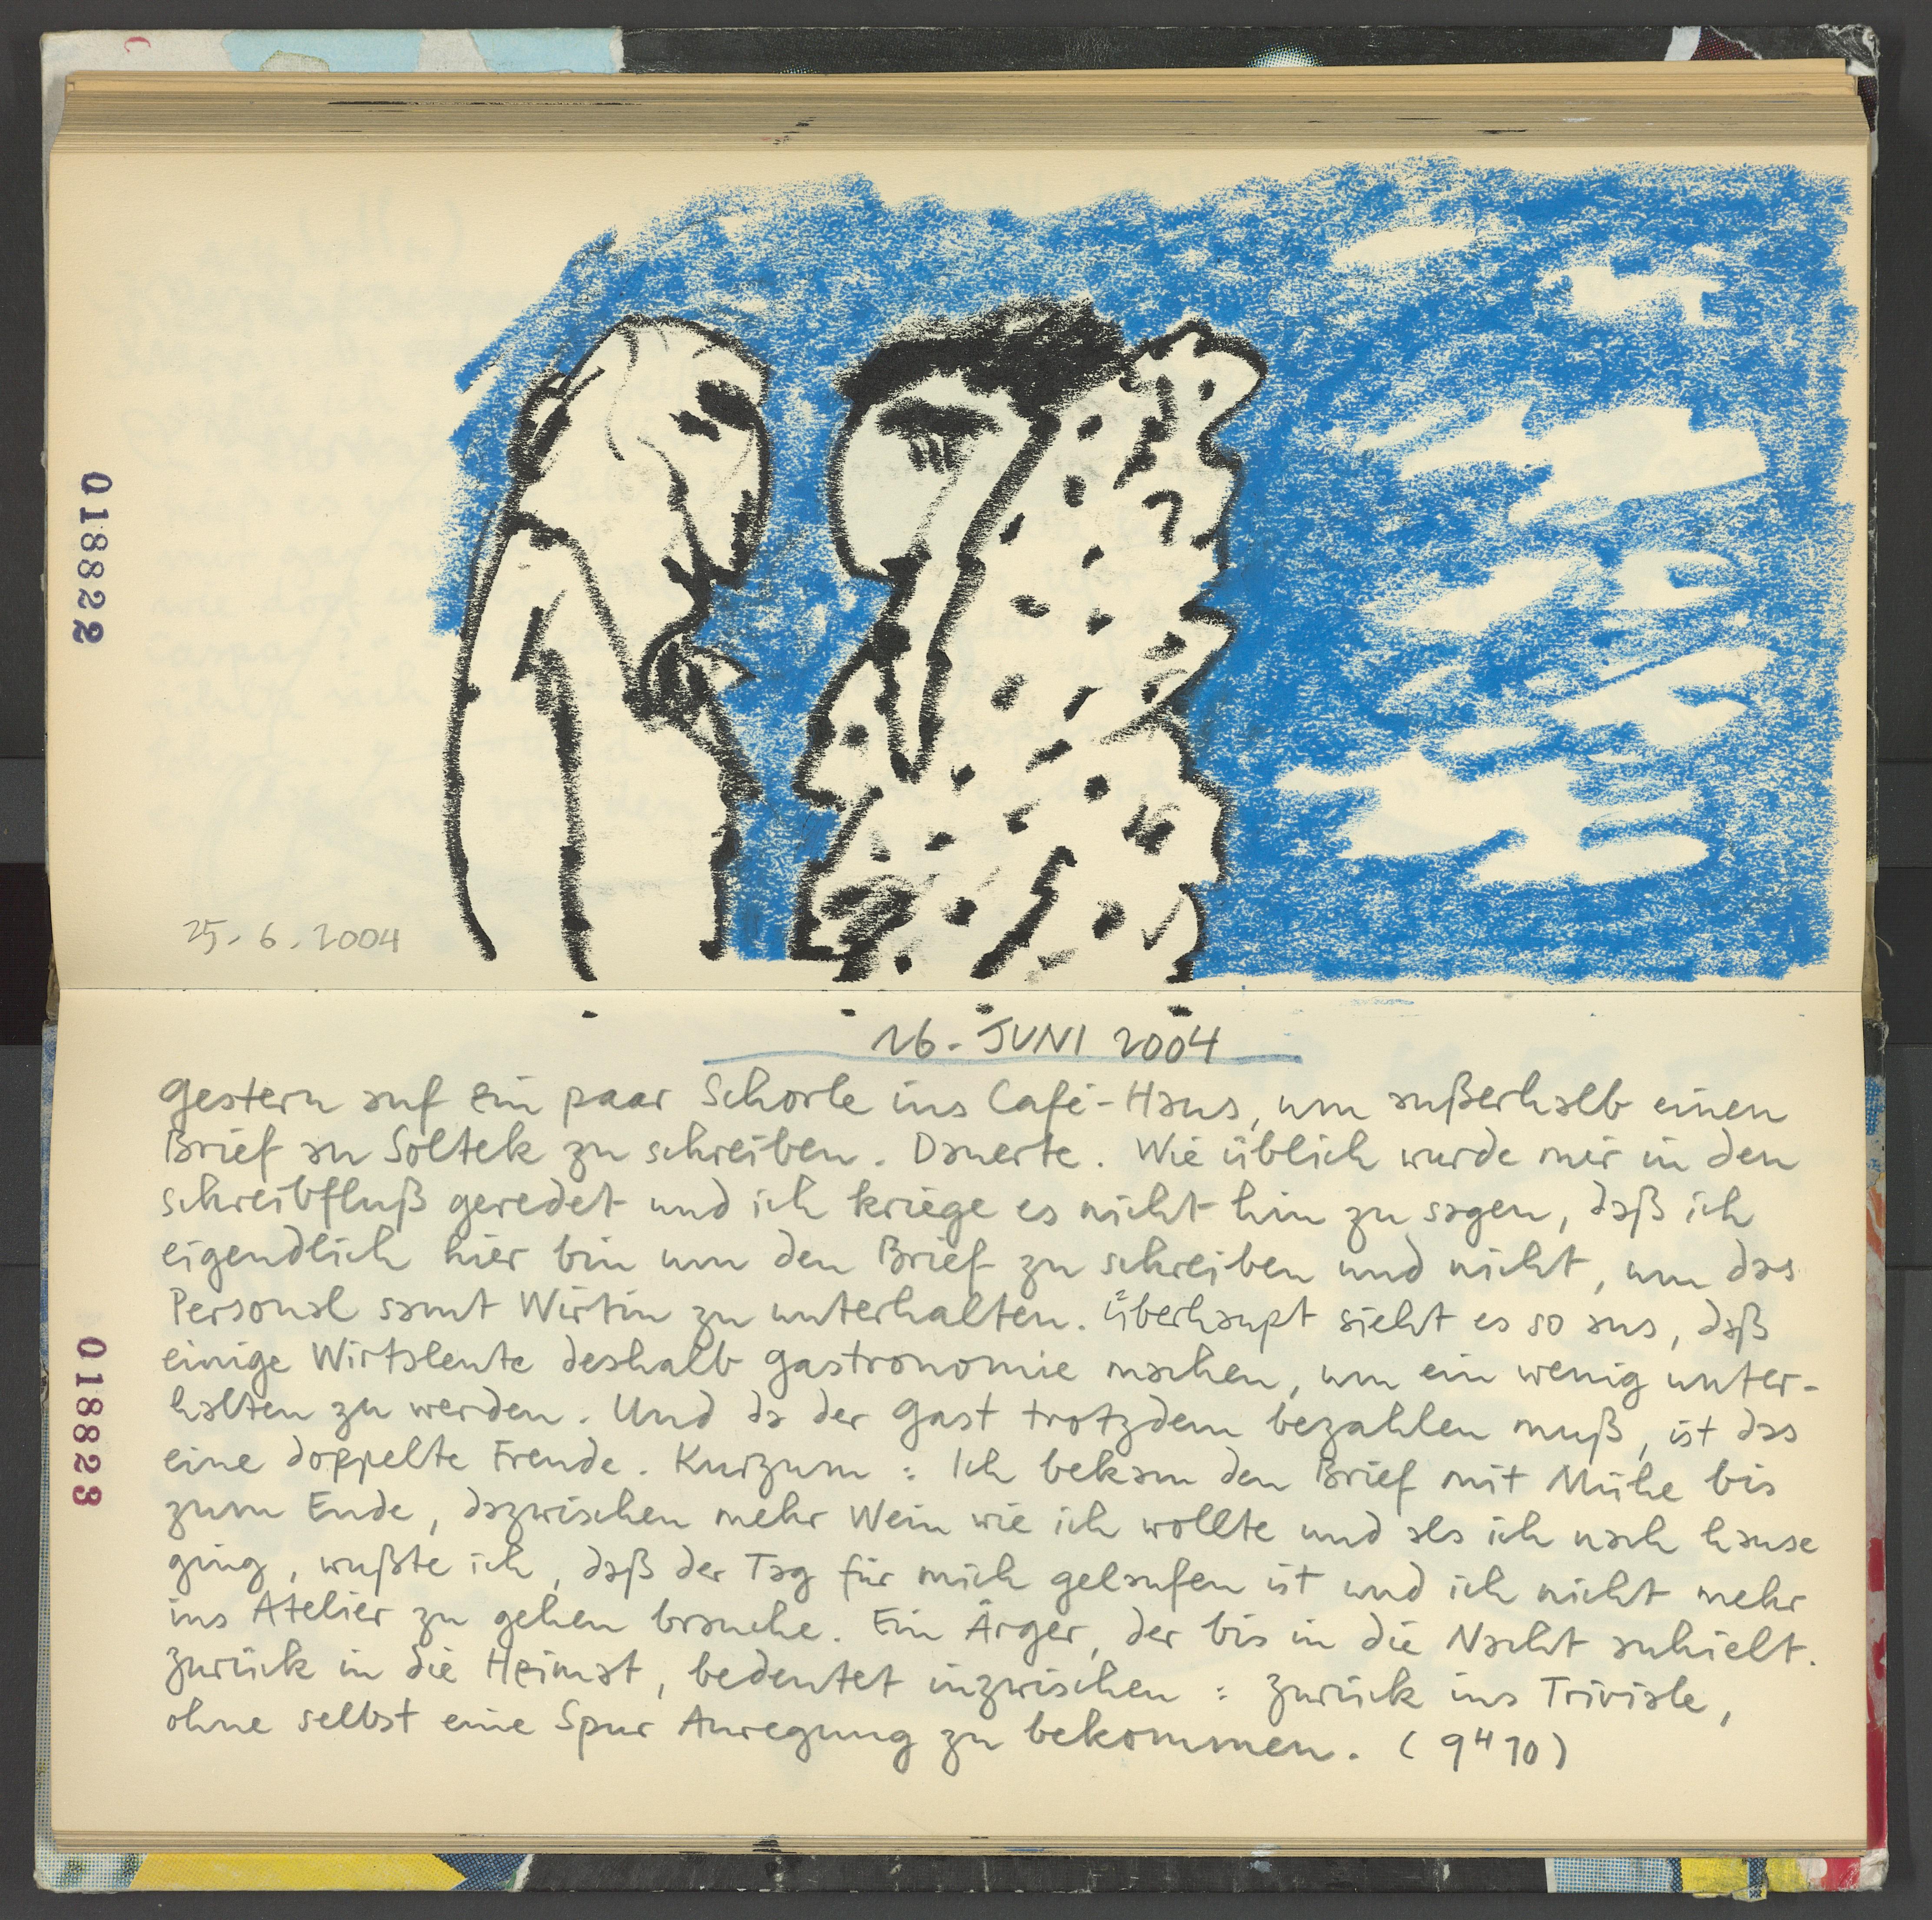 018822
25.6.2004
16. JUNI 2004
Gestern auf ein paar Schorle ins Café-Haus, um außerhalb einen
Brief an Soltek zu schreiben. Dauerte. Wie üblich wurde mir in den
Schreibfluß geredet und ich kriege es nicht hin zu sagen, daß ich
eigendlich hier bin um den Brief zu schreiben und nicht, um das
Personal samt Wirtin zu unterhalten. Überhaupt sieht es so aus, daß
einige Wirtsleute deshalb Gastronomie machen, um ein wenig unter-
halten zu werden. Und da der Gast trotzdem bezahlen muß, ist das
eine doppelte Freude. Kurzum: Ich bekam den Brief mit Mühe bis
zum Ende, dazwischen mehr Wein wie ich wollte und als ich nach hause
ging, wußte ich, daß der Tag für mich gelaufen ist und ich nicht mehr
ins Atelier zu gehen brauche. Ein Ärger, der bis in die Nacht anhielt.
Zurück in die Heimat, bedeutet inzwischen: Zurück ins Triviale,
ohne selbst eine Spur Anregung zu bekommen. (9H10)
018823